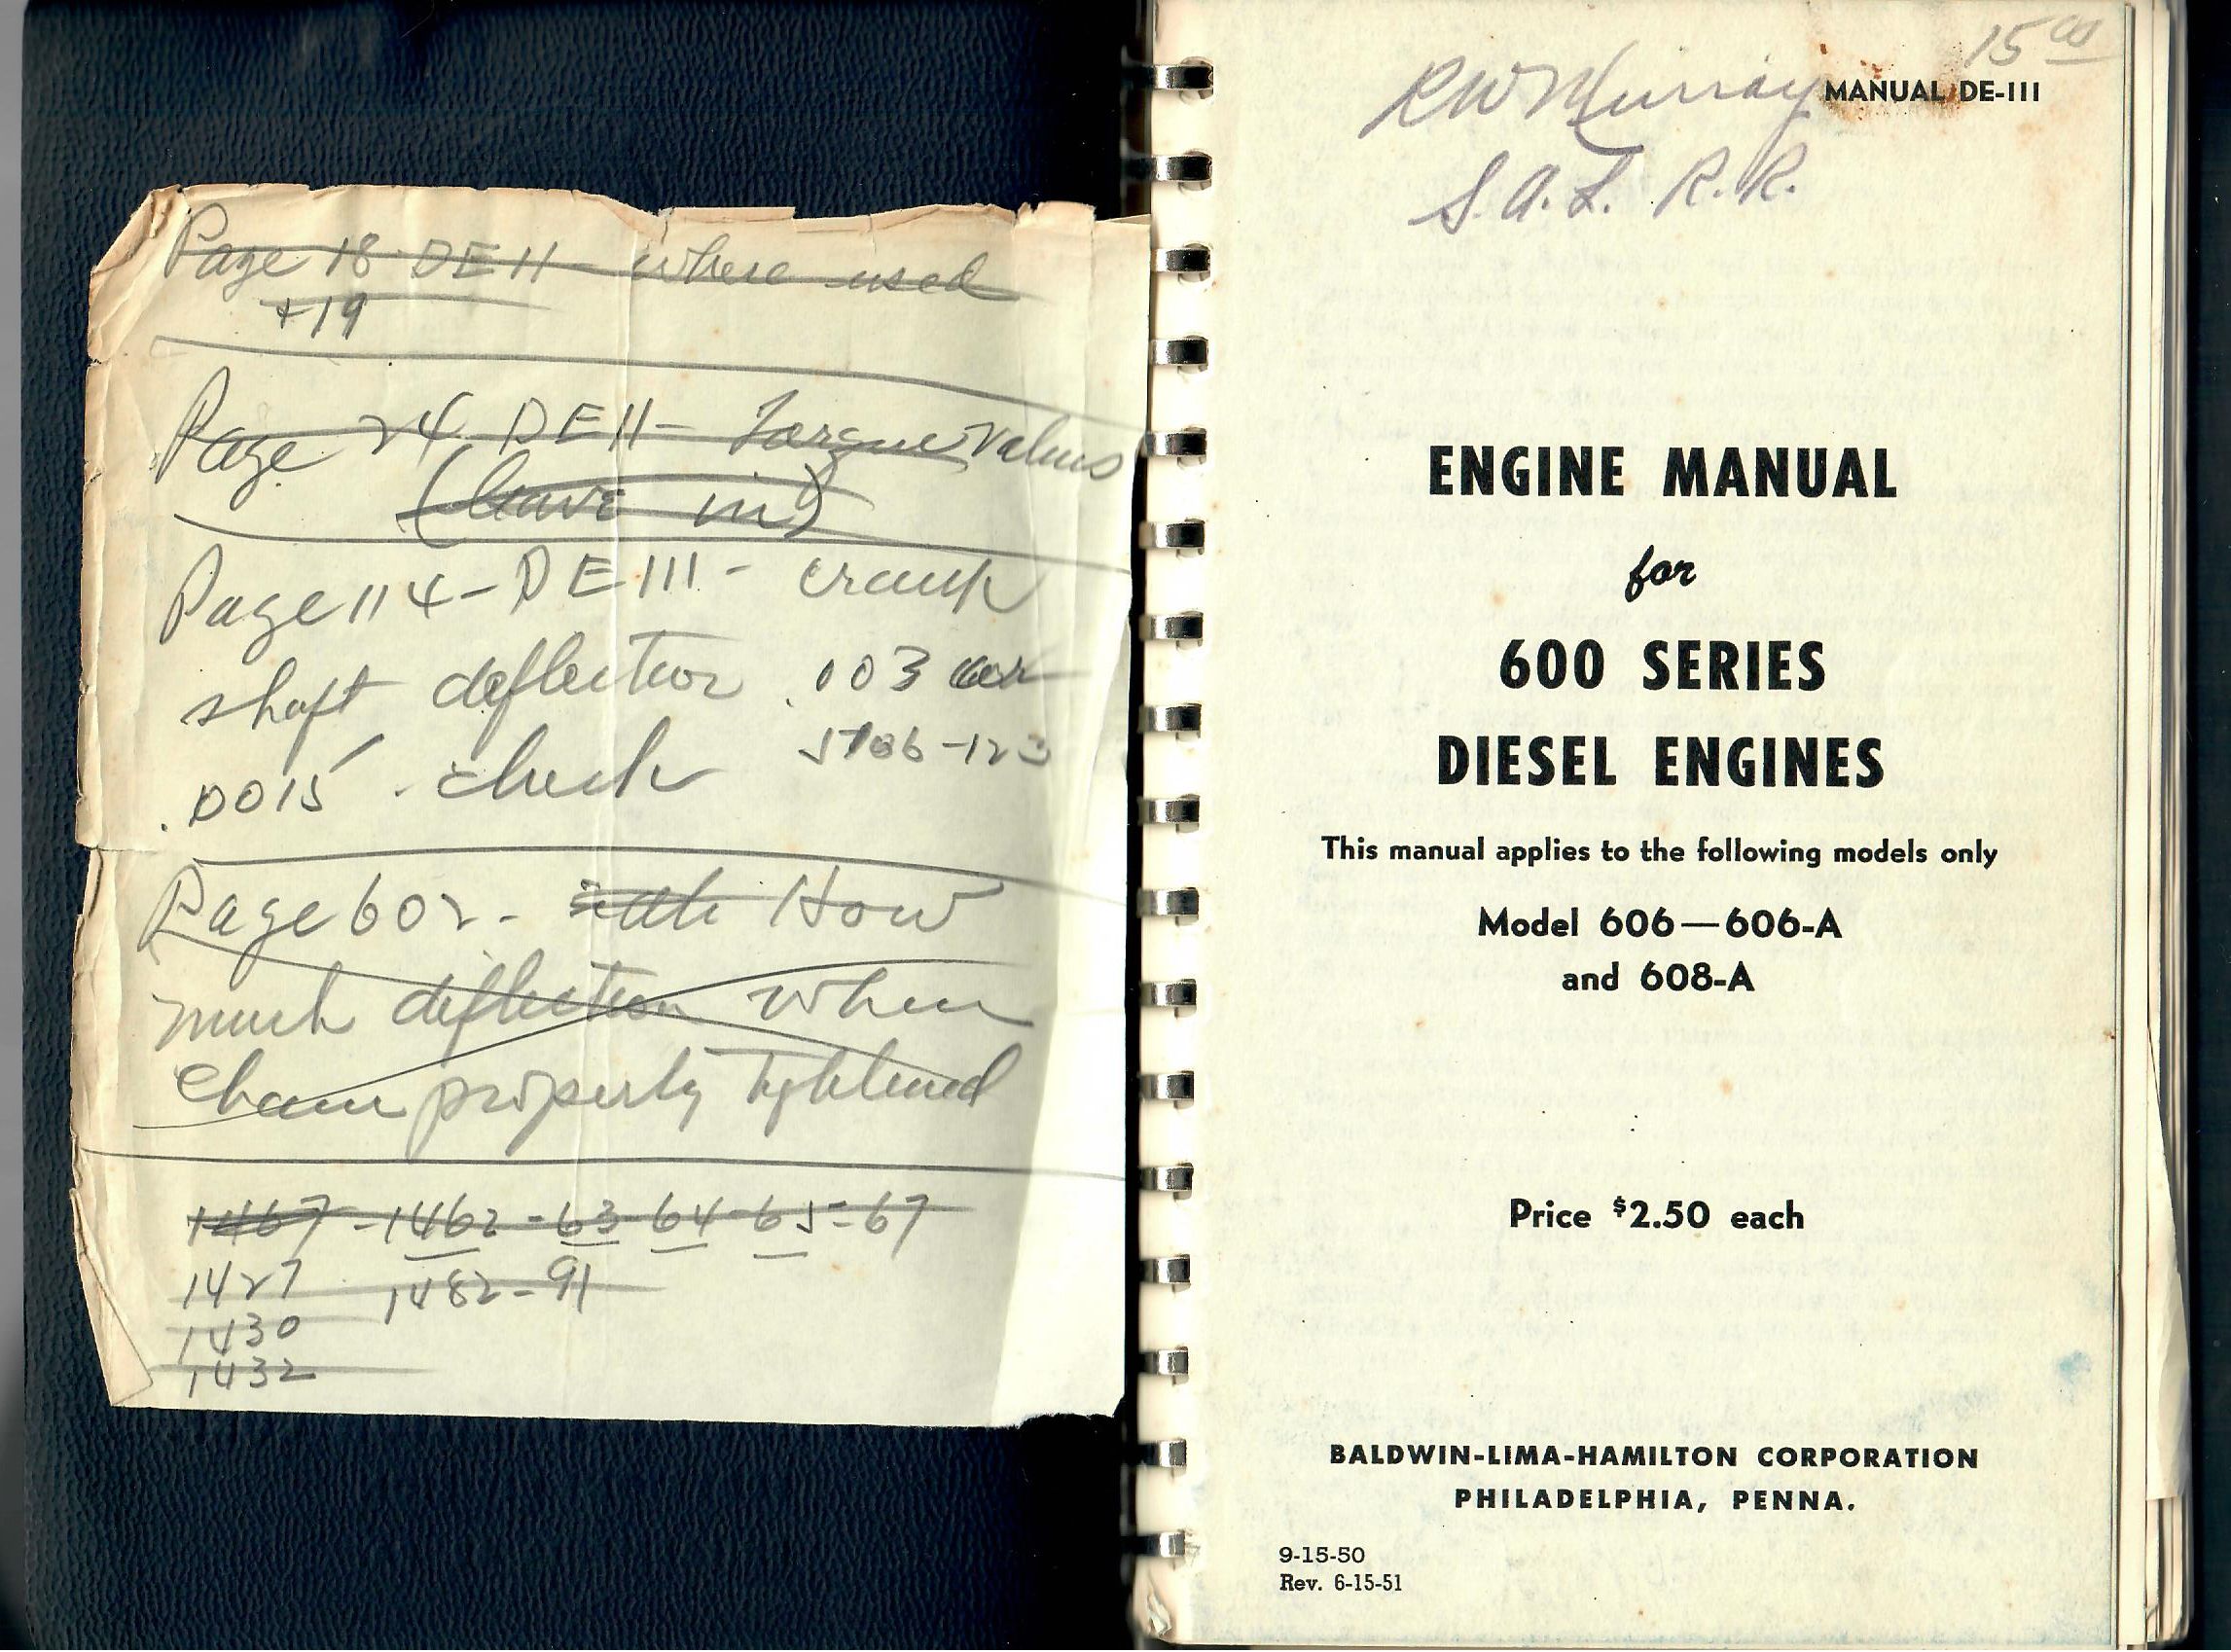 Page 18 DE11 - where used
+19
Page 24 DE11 - Torque values
(leave in)
Page 114 - DE111 - crank
shaft deflection .003
.0015 - check 5706-123
Page 602 - How
much deflection when
chain properly tightened
1467 - 1462 - 63 - 64 - 65 - 67
1427 1482 - 91
1430
1432
15 00
RW Murray
MANUAL DE-111
S.A.L. R.R.
ENGINE MANUAL
for
600 SERIES
DIESEL ENGINES
This manual applies to the following models only
Model 606—606-A
and 608-A
Price $2.50 each
BALDWIN-LIMA-HAMILTON CORPORATION
PHILADELPHIA, PENNA.
9-15-50
Rev. 6-15-51